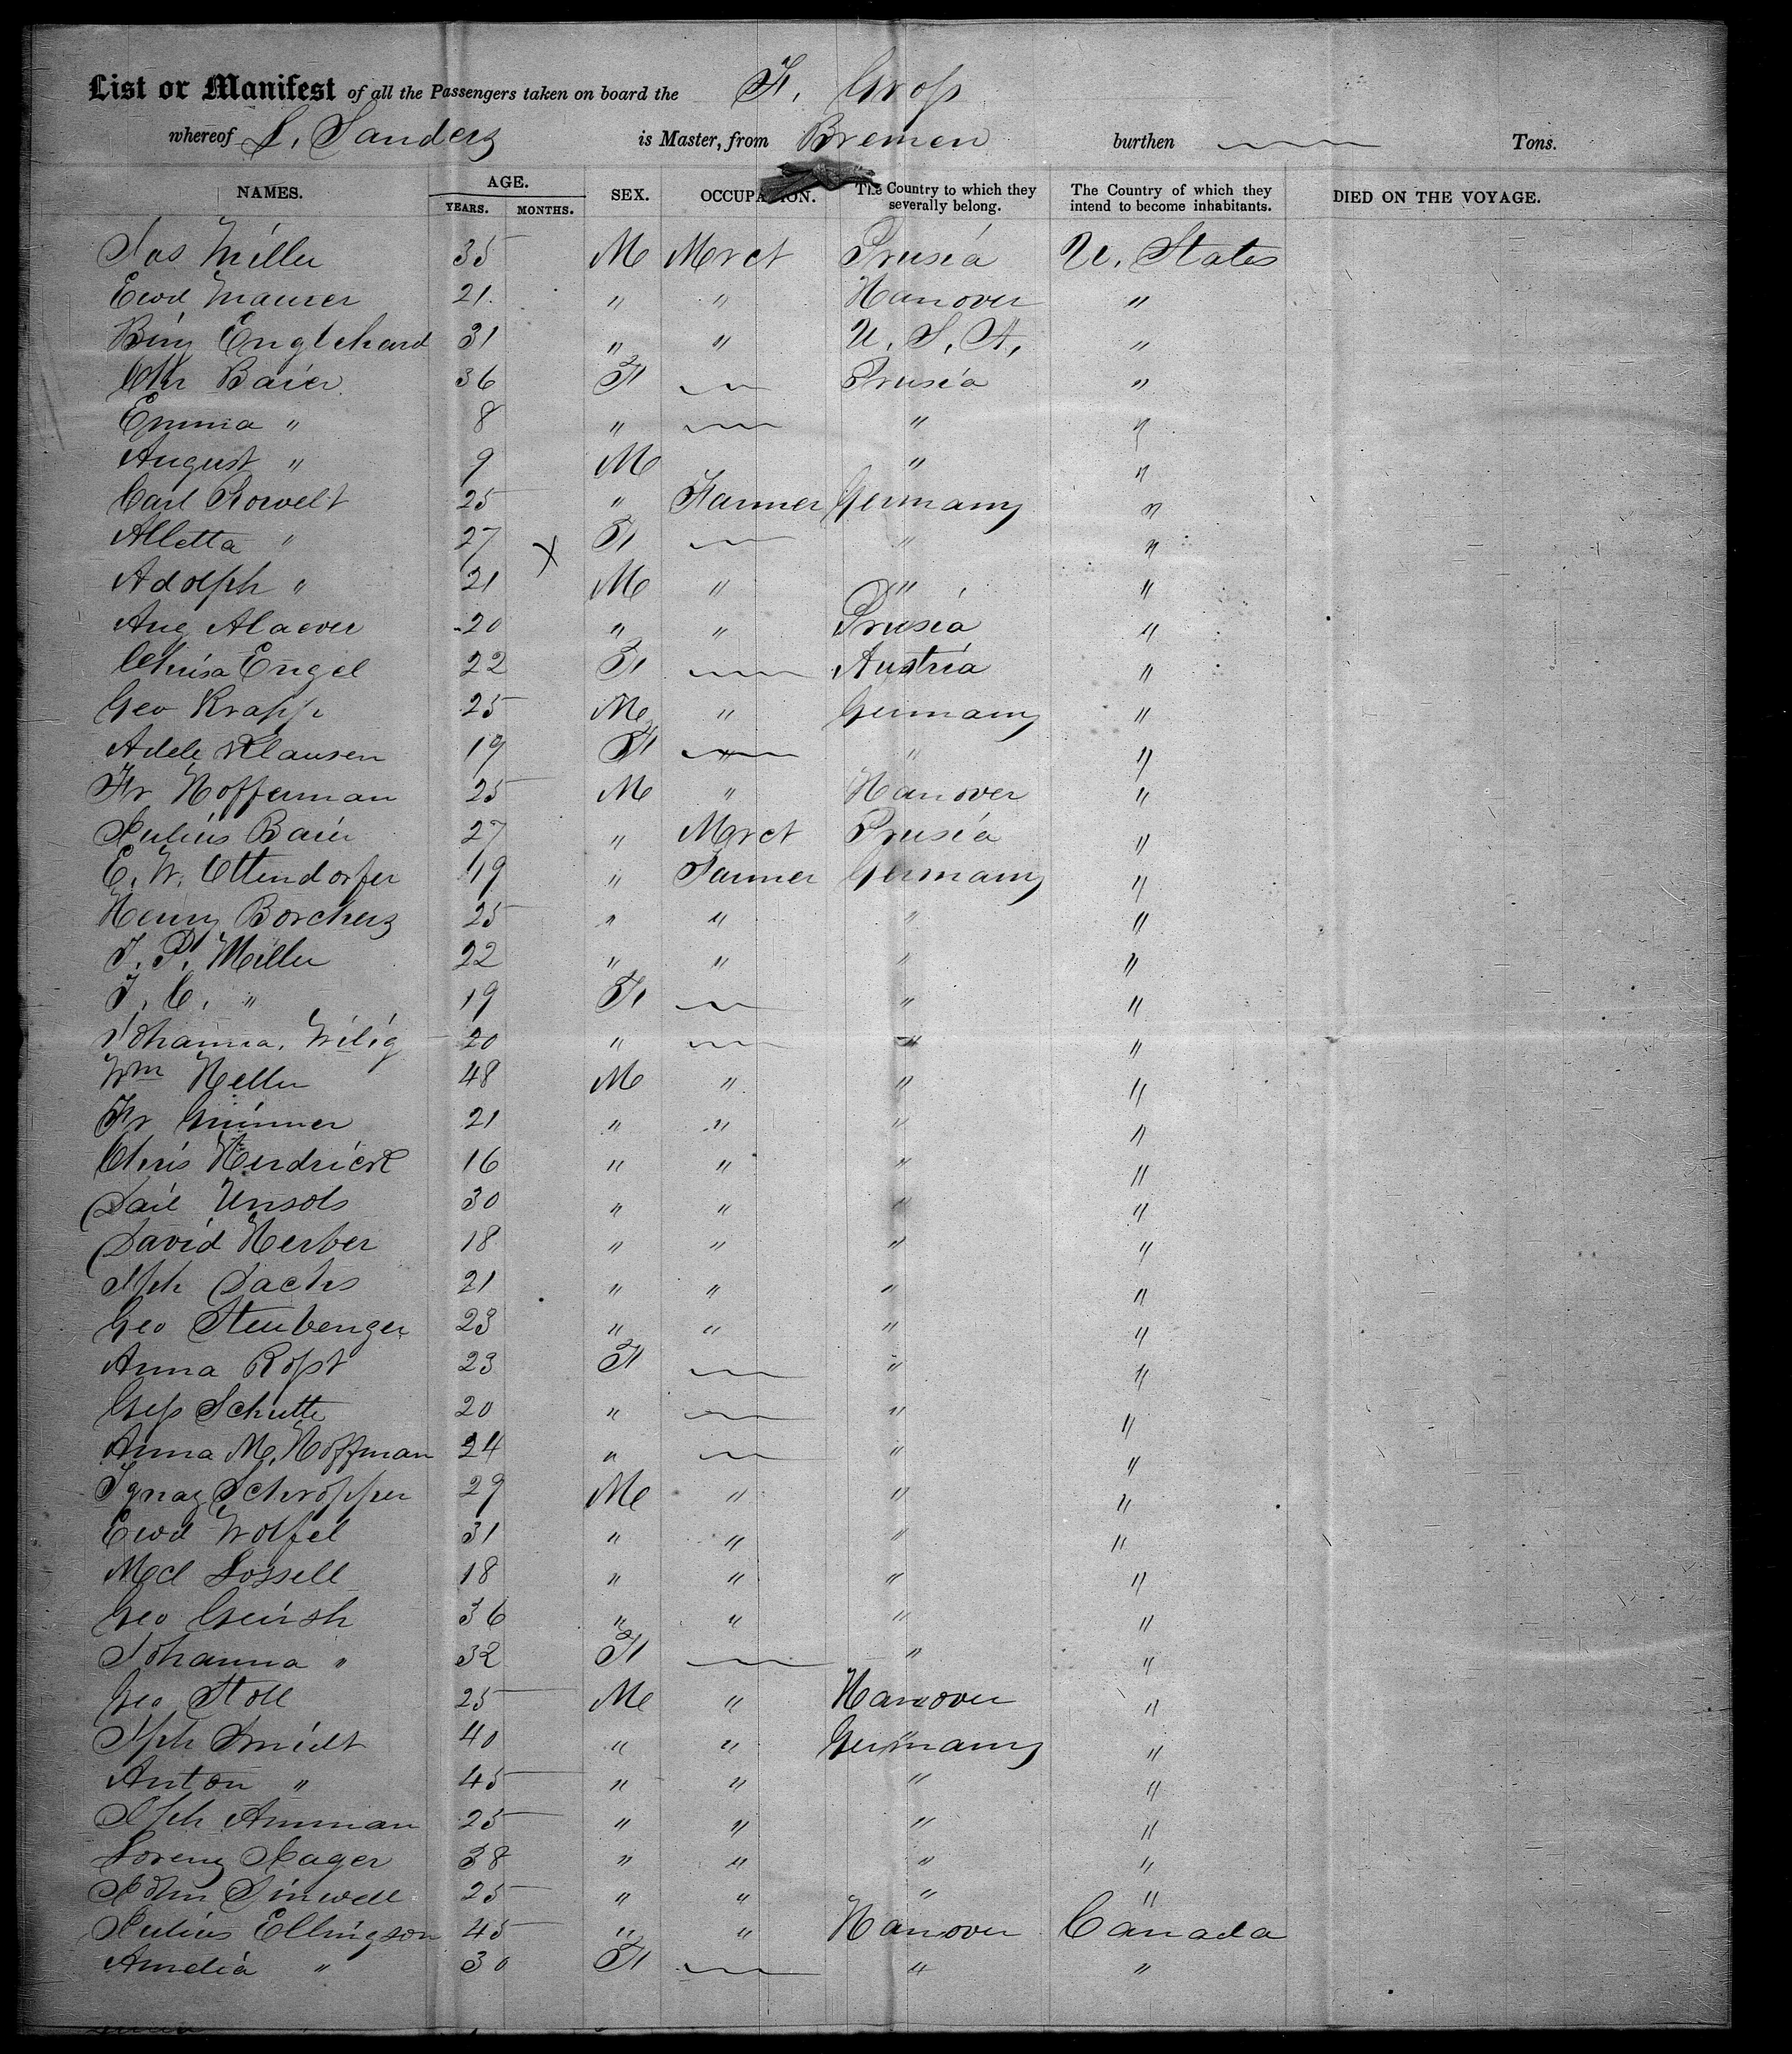 List or Manifest of all the Passengers taken on board the F. Gross
whereof L. Sanders is Master, from Bremen burthen Tons.
NAMES. AGE. YEARS. MONTHS. SEX. OCCUPATION. The Country to which they severally belong. The Country of which they intend to become inhabitants. DIED ON THE VOYAGE.
Jos Miller 35 M Mrct Prusia U. States
Ewd Maurer 21 " " Hanover "
Benj Englehard 31 " " U. S. A. "
Chr Baier 36 F Prusia "
Emma " 8 " " "
August " 9 M " "
Carl Rowelt 25 " Farmer Germany "
Alletta " 27 X F " "
Adolph " 21 M " " "
Aug Alaever 20 " " Prusia "
Chrisa Engel 22 F Austria "
Geo Krapp 25 M " Germany "
Adele Klausen 19 F " " "
Fr Hofferman 25 M " Hanover "
Julius Baier 27 " Mrct Prusia "
E. W. Ottendorfer 19 " Farmer Germany "
Henry Borchers 25 " " " "
J. P. Miller 22 " " " "
J. C. " 19 F " "
Johanna Wilig 20 " " "
Wm Heller 48 M " " "
Fr Grimmer 21 " " " "
Chris Hendrick 16 " " " "
Unsols 30 " " " "
David Herber 18 " " " "
Jph Sachs 21 " " " "
Geo Steubenger 23 " " " "
Anna Rosst 23 F " "
Gess Schutte 20 " " "
Anna M. Hoffman 24 " " "
Ignaz Schropper 29 M " " "
Ewd Wolfel 31 " " " "
Med Lossell 18 " " " "
Geo Geirsh 36 " " " "
Johanna " 32 F " "
Geo Stoll 25 M " Hanover "
Jph Smidt 40 " " Germany "
Anton " 45 " " " "
Jph Amman 25 " " " "
Lorenz Jager 38 " " " "
John Sinwell 25 " " " "
Julius Ellingson 45 " " Hanover Canada
Amelia " 30 F " "